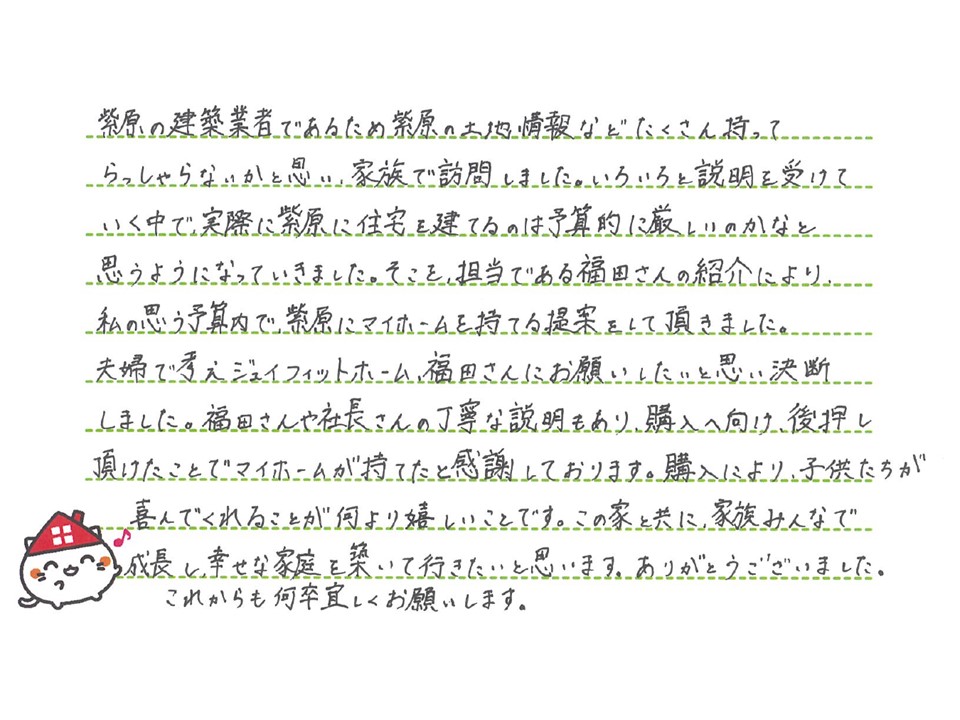 紫原の建築業者であるため紫原の土地情報などたくさん持って
らっしゃらないかと思い、家族で訪問しました。いろいろと説明を受けて
いく中で、実際に紫原に住宅を建てるのは予算的に厳しいのかなと
思うようになっていきました。そこを、担当である福田さんの紹介により、
私の思う予算内で、紫原にマイホームを持てる提案をして頂きました。
夫婦で考えジェイフィットホーム、福田さんにお願いしたいと思い決断
しました。福田さんや社長さんの丁寧な説明もあり、購入へ向け、後押し
頂けたことでマイホームが持てたと感謝しております。購入により、子供たちが
喜んでくれることが何より嬉しいことです。この家と共に、家族みんなで
成長し、幸せな家庭を築いて行きたいと思います。ありがとうございました。
これからも何卒宜しくお願いします。